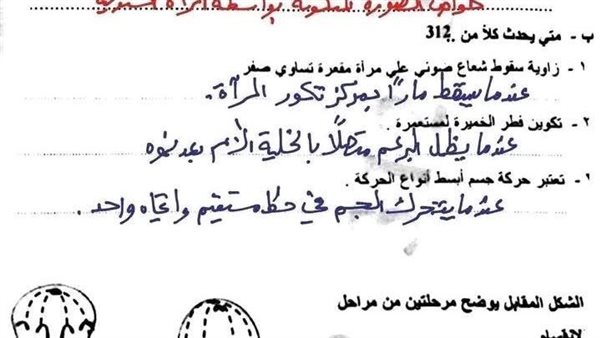 خواص الصورة المتكونة بواسطة المرآة المستوية
ب - متي يحدث كلاً من 312.
١ - زاوية سقوط شعاع ضوئي علي مرآة مقعرة تساوي صفر
عندما يسقط مارًا بمركز تكور المرآة.
٢ - تكوين فطر الخميرة لمستعمرة.
عندما يظل البرعم متصلًا بالخلية الأم بعد نموه
٢ - تعتبر حركة جسم أبسط أنواع الحركة.
عندما يتحرك الجسم في خط مستقيم واتجاه واحد.
الشكل المقابل يوضح مرحلتين من مراحل
لانقسام